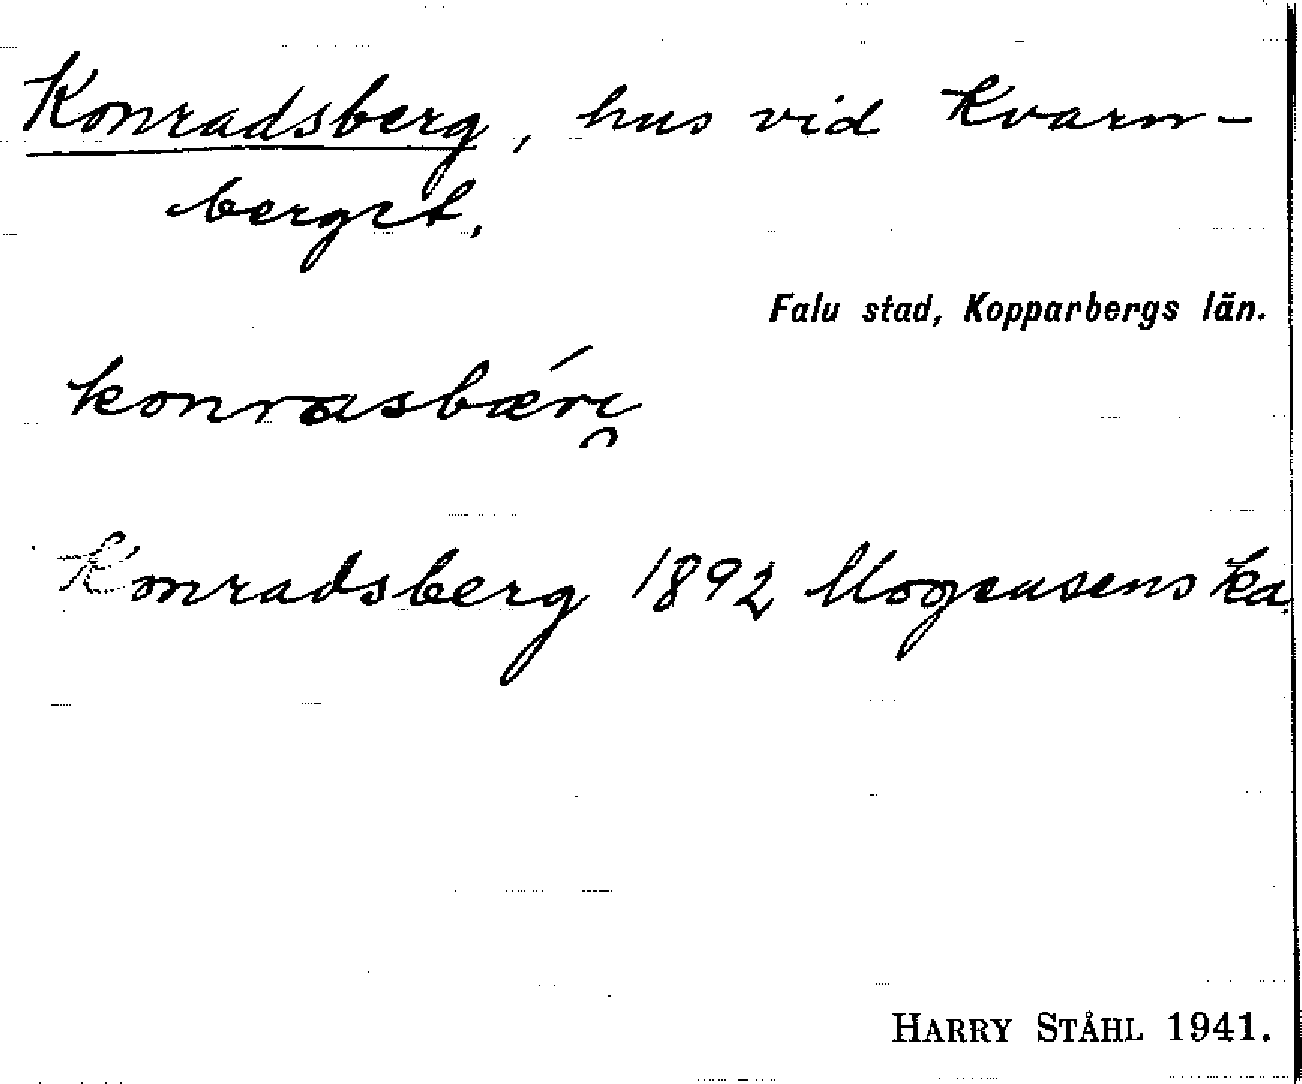 Konradsberg, hus vid Kvarn-
berget.
Falu stad, Kopparbergs län.
konrasbǽri̯
Konradsberg 1892 Mogensens ka.
HARRY STÅHL 1941.